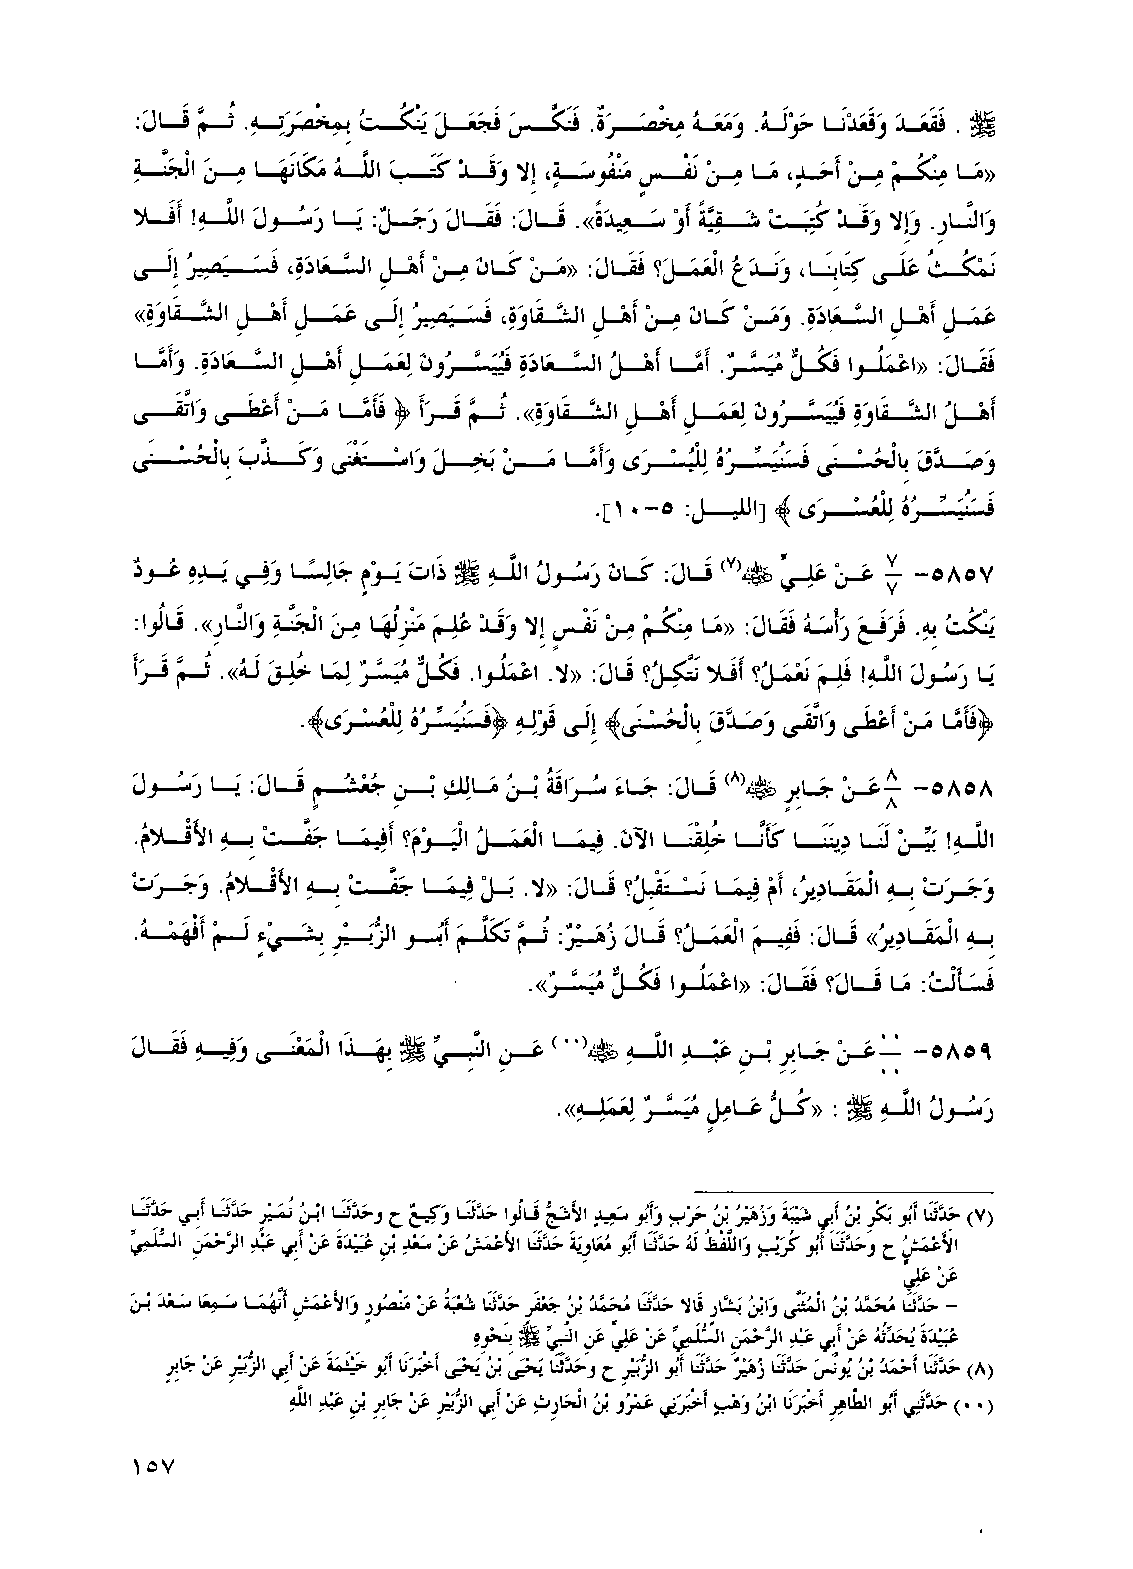 ﷺ . فَقَعَدَ وَقَعَدْنَا حَوْلَهُ. وَمَعَهُ مِخْصَرَةٌ. فَنَكَّسَ فَجَعَلَ يَنْكُتُ بِمِخْصَرَتِهِ. ثُمَّ قَالَ:
«مَا مِنْكُمْ مِنْ أَحَدٍ، مَا مِنْ نَفْسٍ مَنْفُوسَةٍ، إِلا وَقَدْ كَتَبَ اللَّهُ مَكَانَهَا مِنَ الْجَنَّةِ
وَالنَّارِ. وَإِلا وَقَدْ كُتِبَتْ شَقِيَّةً أَوْ سَعِيدَةً». قَالَ: فَقَالَ رَجُلٌ: يَا رَسُولَ اللَّهِ! أَفَلا
نَمْكُثُ عَلَى كِتَابِنَا، وَنَدَعُ الْعَمَلَ؟ فَقَالَ: «مَنْ كَانَ مِنْ أَهْلِ السَّعَادَةِ، فَسَيَصِيرُ إِلَى
عَمَلِ أَهْلِ السَّعَادَةِ. وَمَنْ كَانَ مِنْ أَهْلِ الشَّقَاوَةِ، فَسَيَصِيرُ إِلَى عَمَلِ أَهْلِ الشَّقَاوَةِ»
فَقَالَ: «اعْمَلُوا فَكُلٌّ مُيَسَّرٌ. أَمَّا أَهْلُ السَّعَادَةِ فَيُيَسَّرُونَ لِعَمَلِ أَهْلِ السَّعَادَةِ. وَأَمَّا
أَهْلُ الشَّقَاوَةِ فَيُيَسَّرُونَ لِعَمَلِ أَهْلِ الشَّقَاوَةِ». ثُمَّ قَرَأَ ﴿ فَأَمَّا مَنْ أَعْطَى وَاتَّقَى
وَصَدَّقَ بِالْحُسْنَى فَسَنُيَسِّرُهُ لِلْيُسْرَى وَأَمَّا مَنْ بَخِلَ وَاسْتَغْنَى وَكَذَّبَ بِالْحُسْنَى
فَسَنُيَسِّرُهُ لِلْعُسْرَى ﴾ [الليل: ٥-١٠].
٥٨٥٧- ٧/٧ عَنْ عَلِيٍّ ﷺ(٧) قَالَ: كَانَ رَسُولُ اللَّهِ ﷺ ذَاتَ يَوْمٍ جَالِسًا وَفِي يَدِهِ عُودٌ
يَنْكُتُ بِهِ. فَرَفَعَ رَأْسَهُ فَقَالَ: «مَا مِنْكُمْ مِنْ نَفْسٍ إِلا وَقَدْ عُلِمَ مَنْزِلُهَا مِنَ الْجَنَّةِ وَالنَّارِ». قَالُوا:
يَا رَسُولَ اللَّهِ! فَلِمَ نَعْمَلُ؟ أَفَلا نَتَّكِلُ؟ قَالَ: «لا. اعْمَلُوا. فَكُلٌّ مُيَسَّرٌ لِمَا خُلِقَ لَهُ». ثُمَّ قَرَأَ
﴿فَأَمَّا مَنْ أَعْطَى وَاتَّقَى وَصَدَّقَ بِالْحُسْنَى﴾ إِلَى قَوْلِهِ ﴿فَسَنُيَسِّرُهُ لِلْعُسْرَى﴾.
٥٨٥٨- ٨/٨ عَنْ جَابِرٍ (٨) قَالَ: جَاءَ سُرَاقَةُ بْنُ مَالِكِ بْنِ جُعْشُمٍ قَالَ: يَا رَسُولَ
اللَّهِ! بَيِّنْ لَنَا دِينَنَا كَأَنَّا خُلِقْنَا الآنَ. فِيمَا الْعَمَلُ الْيَوْمَ؟ أَفِيمَا جَفَّتْ بِهِ الأَقْلامُ.
وَجَرَتْ بِهِ الْمَقَادِيرُ، أَمْ فِيمَا نَسْتَقْبِلُ؟ قَالَ: «لا. بَلْ فِيمَا جَفَّتْ بِهِ الأَقْلامُ. وَجَرَتْ
بِهِ الْمَقَادِيرُ» قَالَ: فَفِيمَ الْعَمَلُ؟ قَالَ زُهَيْرٌ: ثُمَّ تَكَلَّمَ أَبُو الزُّبَيْرِ بِشَيْءٍ لَمْ أَفْهَمْهُ.
فَسَأَلْتُ: مَا قَالَ؟ فَقَالَ: «اعْمَلُوا فَكُلٌّ مُيَسَّرٌ».
٥٨٥٩- عَنْ جَابِرِ بْنِ عَبْدِ اللَّهِ (٠٠) عَنِ النَّبِيِّ ﷺ بِهَذَا الْمَعْنَى وَفِيهِ فَقَالَ
رَسُولُ اللَّهِ ﷺ : «كُلُّ عَامِلٍ مُيَسَّرٌ لِعَمَلِهِ».
(٧) حَدَّثَنَا أَبُو بَكْرِ بْنُ أَبِي شَيْبَةَ وَزُهَيْرُ بْنُ حَرْبٍ وَأَبُو سَعِيدٍ الأَشَجُّ قَالُوا حَدَّثَنَا وَكِيعٌ ح وحَدَّثَنَا ابْنُ نُمَيْرٍ حَدَّثَنَا أَبِي حَدَّثَنَا
الأَعْمَشُ ح وحَدَّثَنَا أَبُو كُرَيْبٍ وَاللَّفْظُ لَهُ حَدَّثَنَا أَبُو مُعَاوِيَةَ حَدَّثَنَا الأَعْمَشُ عَنْ سَعْدِ بْنِ عُبَيْدَةَ عَنْ أَبِي عَبْدِ الرَّحْمَنِ السُّلَمِيِّ
عَنْ عَلِيٍّ
- حَدَّثَنَا مُحَمَّدُ بْنُ الْمُثَنَّى وَابْنُ بَشَّارٍ قَالا حَدَّثَنَا مُحَمَّدُ بْنُ جَعْفَرٍ حَدَّثَنَا شُعْبَةُ عَنْ مَنْصُورٍ وَالأَعْمَشِ أَنَّهُمَا سَمِعَا سَعْدَ بْنَ
عُبَيْدَةَ يُحَدِّثُهُ عَنْ أَبِي عَبْدِ الرَّحْمَنِ السُّلَمِيِّ عَنْ عَلِيٍّ عَنِ النَّبِيِّ ﷺ بِنَحْوِهِ
(٨) حَدَّثَنَا أَحْمَدُ بْنُ يُونُسَ حَدَّثَنَا زُهَيْرٌ حَدَّثَنَا أَبُو الزُّبَيْرِ ح وحَدَّثَنَا يَحْيَى بْنُ يَحْيَى أَخْبَرَنَا أَبُو خَيْثَمَةَ عَنْ أَبِي الزُّبَيْرِ عَنْ جَابِرٍ
(٠٠) حَدَّثَنِي أَبُو الطَّاهِرِ أَخْبَرَنَا ابْنُ وَهْبٍ أَخْبَرَنِي عَمْرُو بْنُ الْحَارِثِ عَنْ أَبِي الزُّبَيْرِ عَنْ جَابِرِ بْنِ عَبْدِ اللَّهِ
١٥٧